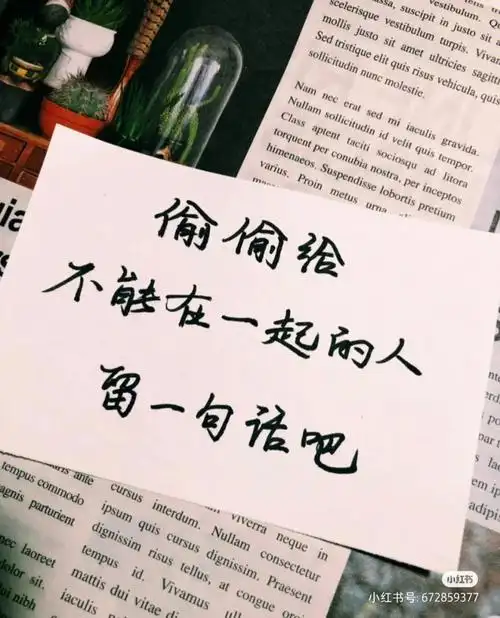 vestibulum. Cum
suscipit in justo sit am
scelerisque vestibulum turpis. Vivam
mollis justo sit amet ultricies sagi
Sed tristique elit quis risus vehicula, qui
sollicitudin nunc molestie.
Nam nec erat sed mi iaculis gravida.
Nullam sollicitudin id velit quis tempor.
Class aptent taciti sociosqu ad litora
torquent per conubia nostra, per inceptos
himenaeos. Suspendisse lobortis pretium
varius. Proin metus urna
偷偷给
不能在一起的人
留一句话吧
tempus commodo
agnis parturient
nec laoreet
dolor sit.
cursus interdum. Nullam consectetur
ipsum quis cursus dignissim. Praesent
dignissim risus tellus, at congue
tempus id. Vivamus
mattis dui vitae
iaculis
viverra neque in
小红书
小红书号: 672859377